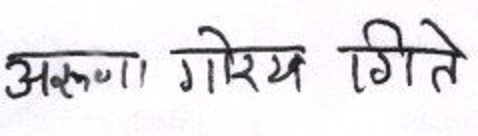 अरूणा गोरख गिते